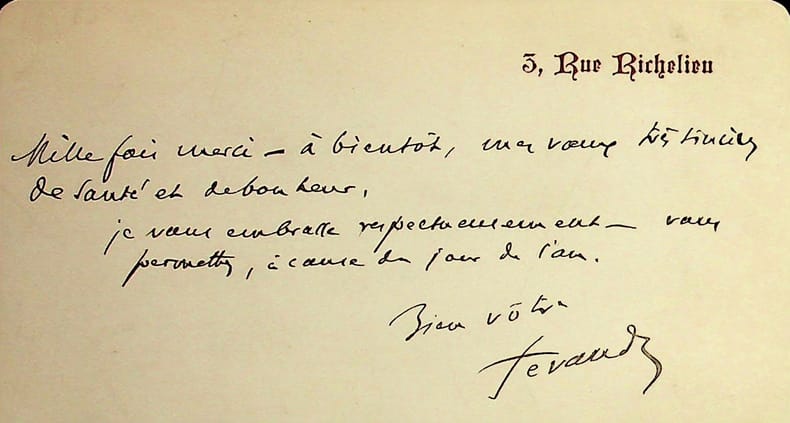 3, Rue Richelieu
Mille fois merci – à bientôt, mes vœux très sincères
de santé et de bonheur.
je vous embrasse respectueusement – vous
permettez, à cause du jour de l'an.
Bien vôtre